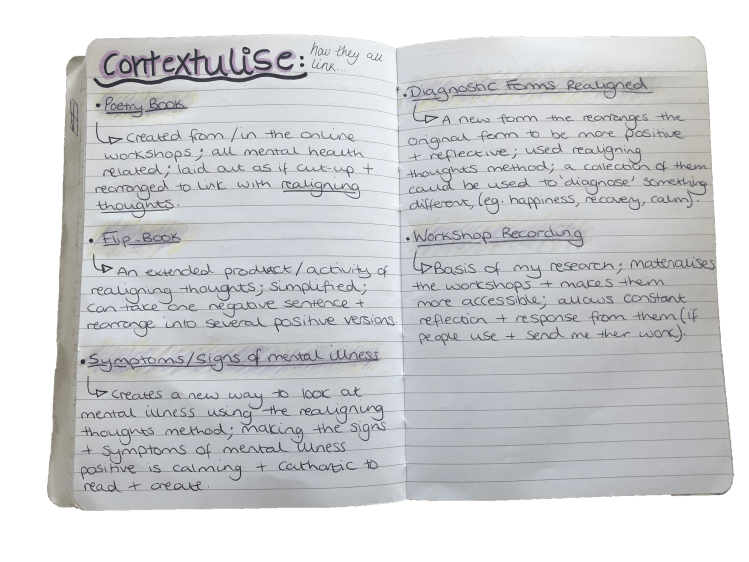 Contextulise: how they all
link...
• Poetry Book
Created from/in the online
workshops; all mental health
related; laid out as if cut-up +
rearranged to link with realigning
thoughts.
• Flip-Book
An extended product/activity of
realigning thoughts; simplified;
can take one negative sentence +
rearrange into several positive versions.
• Symptoms/Signs of mental illness
Creates a new way to look at
mental illness using the realigning
thoughts method; making the signs
+ symptoms of mental illness
positive is calming + cathartic to
read + create.
• Diagnostic Forms Realigned
A new form the rearranges the
original form to be more positive
+ reflective; used realigning
thoughts method; a collection of them
could be used to 'diagnose' something
different, (eg. happiness, recovery, calm).
• Workshop Recording
Basis of my research; materialises
the workshops + makes them
more accessible; allows constant
reflection + response from them (if
people use + send me their work).